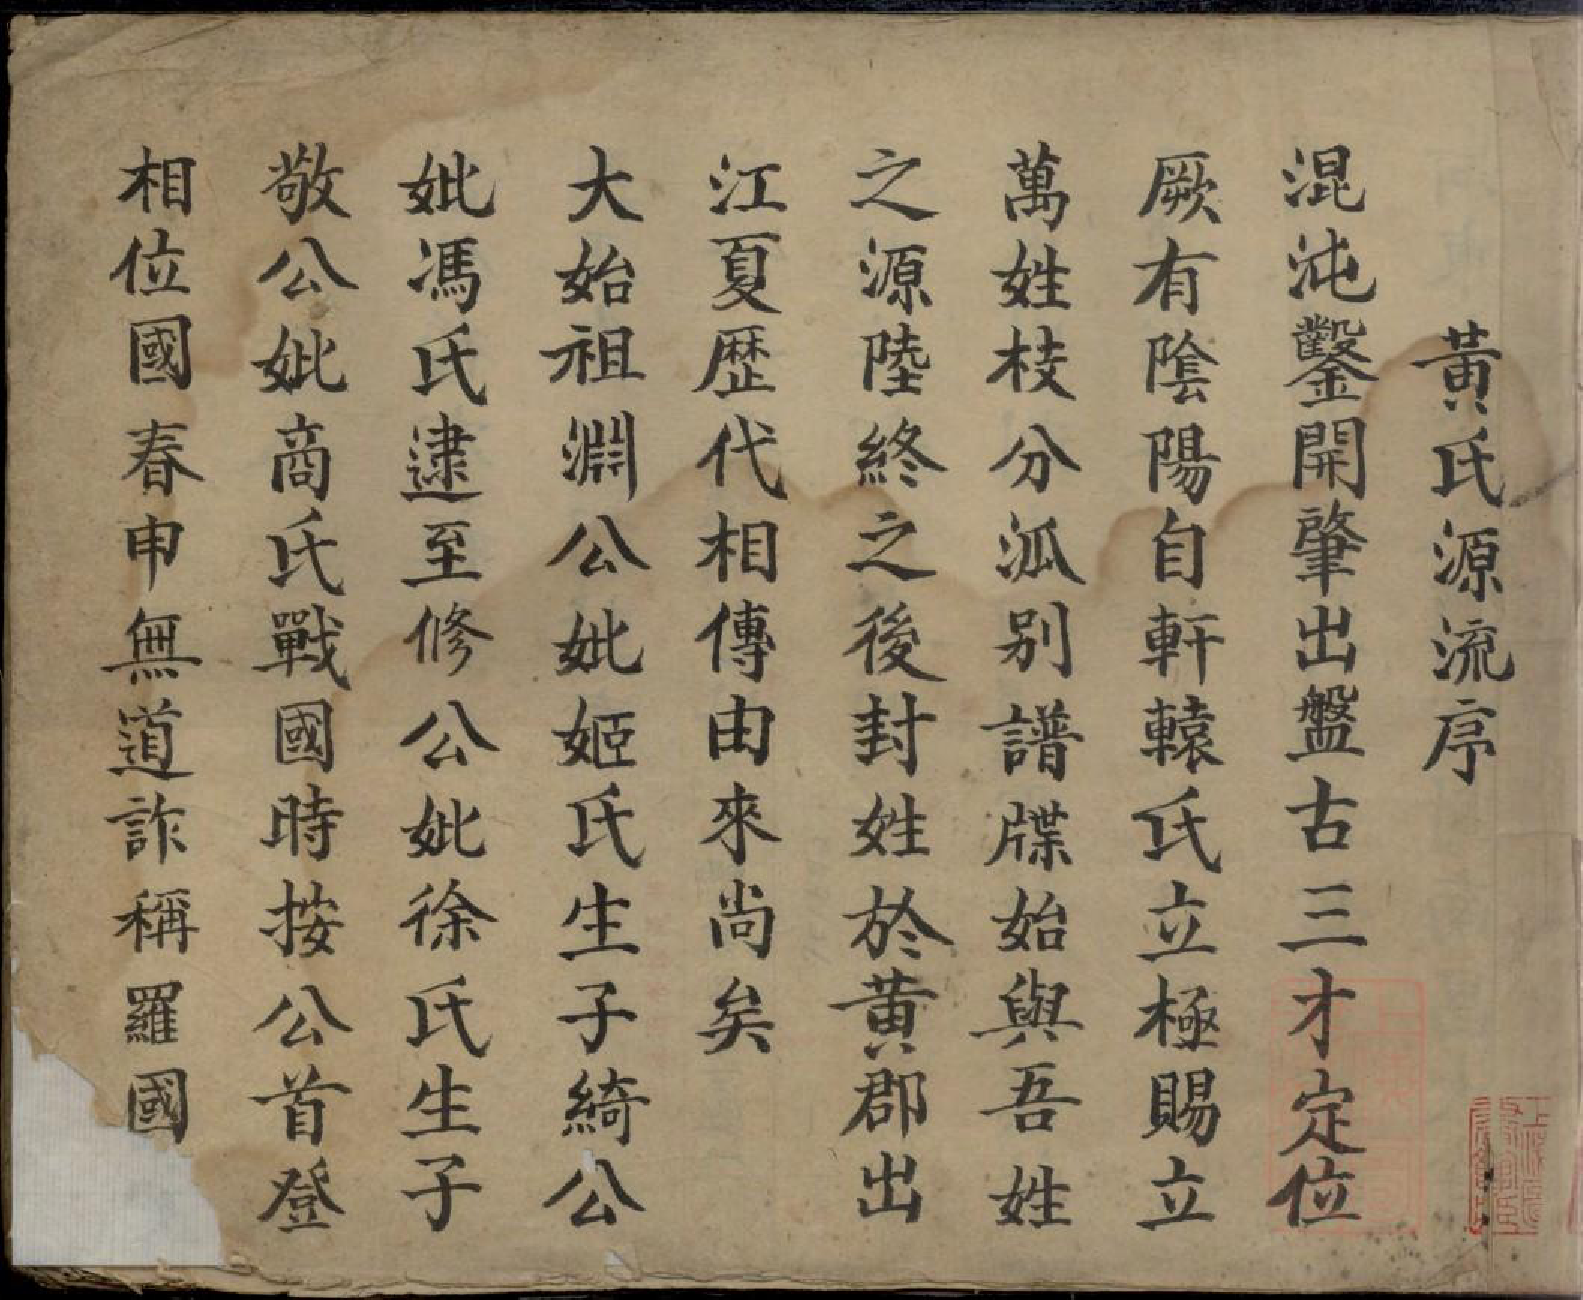 黃氏源流序
混沌鑿開肇出盤古三才定位
厥有陰陽自軒轅氏立極賜立
萬姓枝分泒别譜牒始與吾姓
之源陸終之後封姓於黄郡出
江夏歴代相傳由來尚矣
大始祖淵公妣姬氏生子綺公
妣馮氏逮至修公妣徐氏生子
敬公妣商氏戰國時按公首登
相位國春申無道詐稱羅國